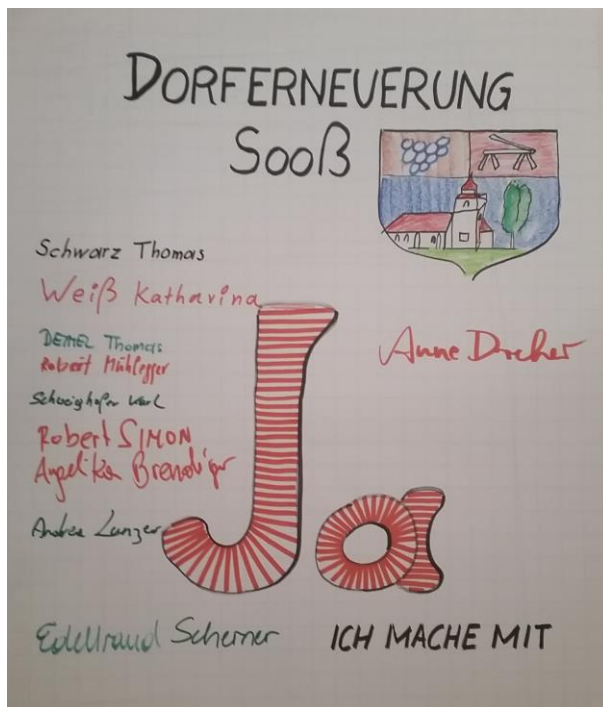 DORFERNEUERUNG
SOOß
Schwarz Thomas
Weiß Katharina
Thomas
Robert Mühlegger
Schweighofer Karl
Robert SIMON
Angelika
Anne
Andrea Lanzer
Ja
Edeltraud
ICH MACHE MIT